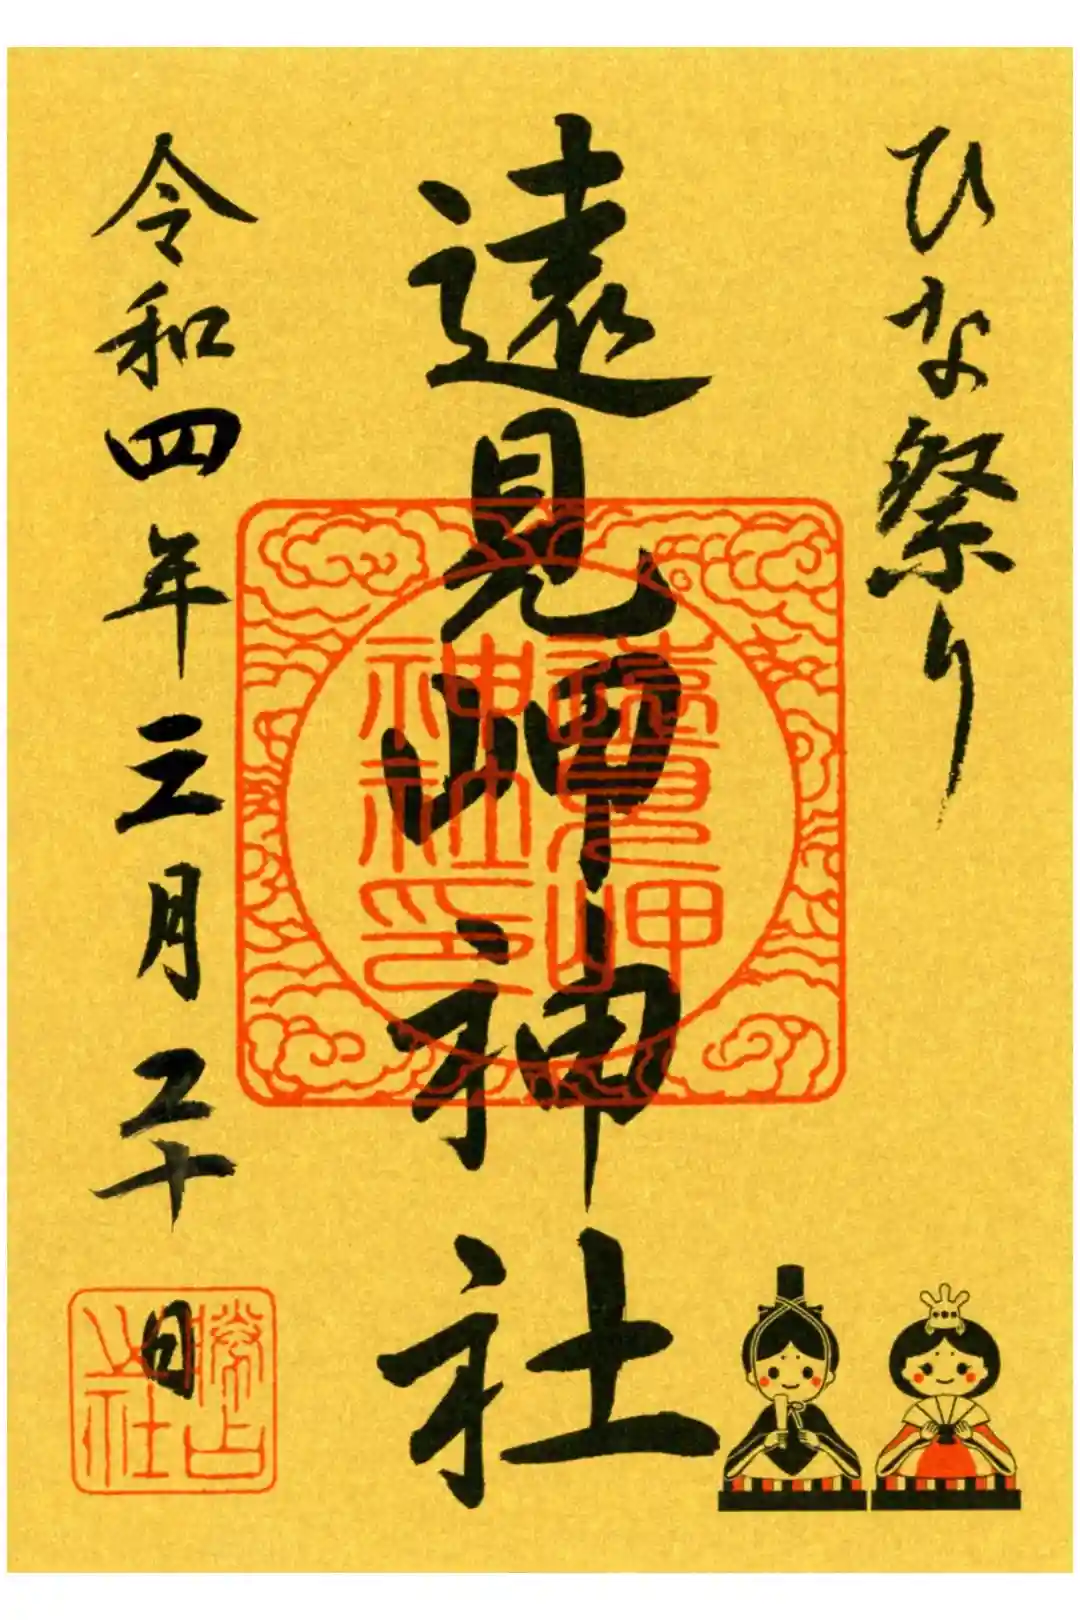 ひな祭り
遠見岬神社
令和四年三月二十日
遠見岬
神社印